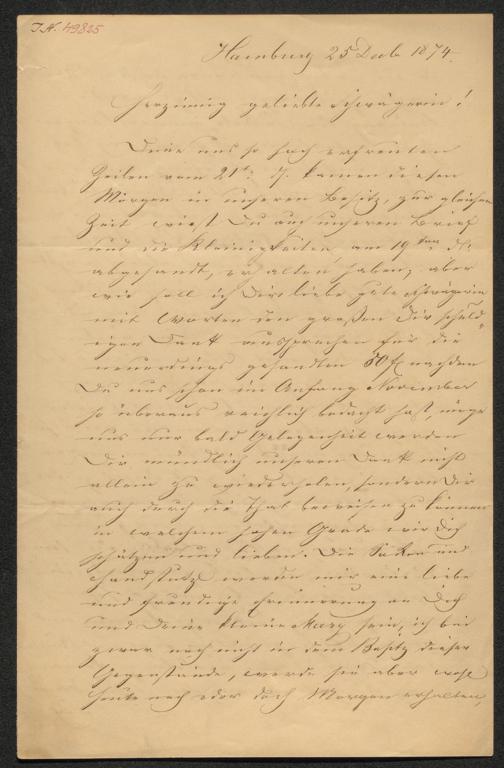 J.N. 49825
Hamburg 25 Decb 1874.
Herzinnig geliebte Schwägerin!
Deine uns so hoch erfreuten
Zeilen vom 21t. d. kamen diesen
Morgen in unseren Besitz, zur gleichen
Zeit wirst Du auch unseren Brief
und die Kleinigkeiten am 19ten ds.
abgesandt, erhalten haben, aber
wie soll ich Dir liebe gute Schwägerin
mit Worten den großen Dir schuld-
igen Dank aussprechen für die
neuerdings gesandten 50 nachdem
Du uns schon im Anfang November
so überaus reichlich bedacht hast, möge
uns nur bald Gelegenheit werden
Dir mündlich unseren Dank nicht
allein zu wiederholen, sondern Dir
auch durch die That beweisen zu können
in welchem hohen Grade wir Dich
schätzen und lieben. Die und
werden mir eine liebe
und freudige Erinnerung an Dich
und Deine kleine Mary sein, ich bin
zwar noch nicht in dem Besitz dieser
Gegenstände, werde sie aber wohl
heute noch oder doch Morgen erhalten,